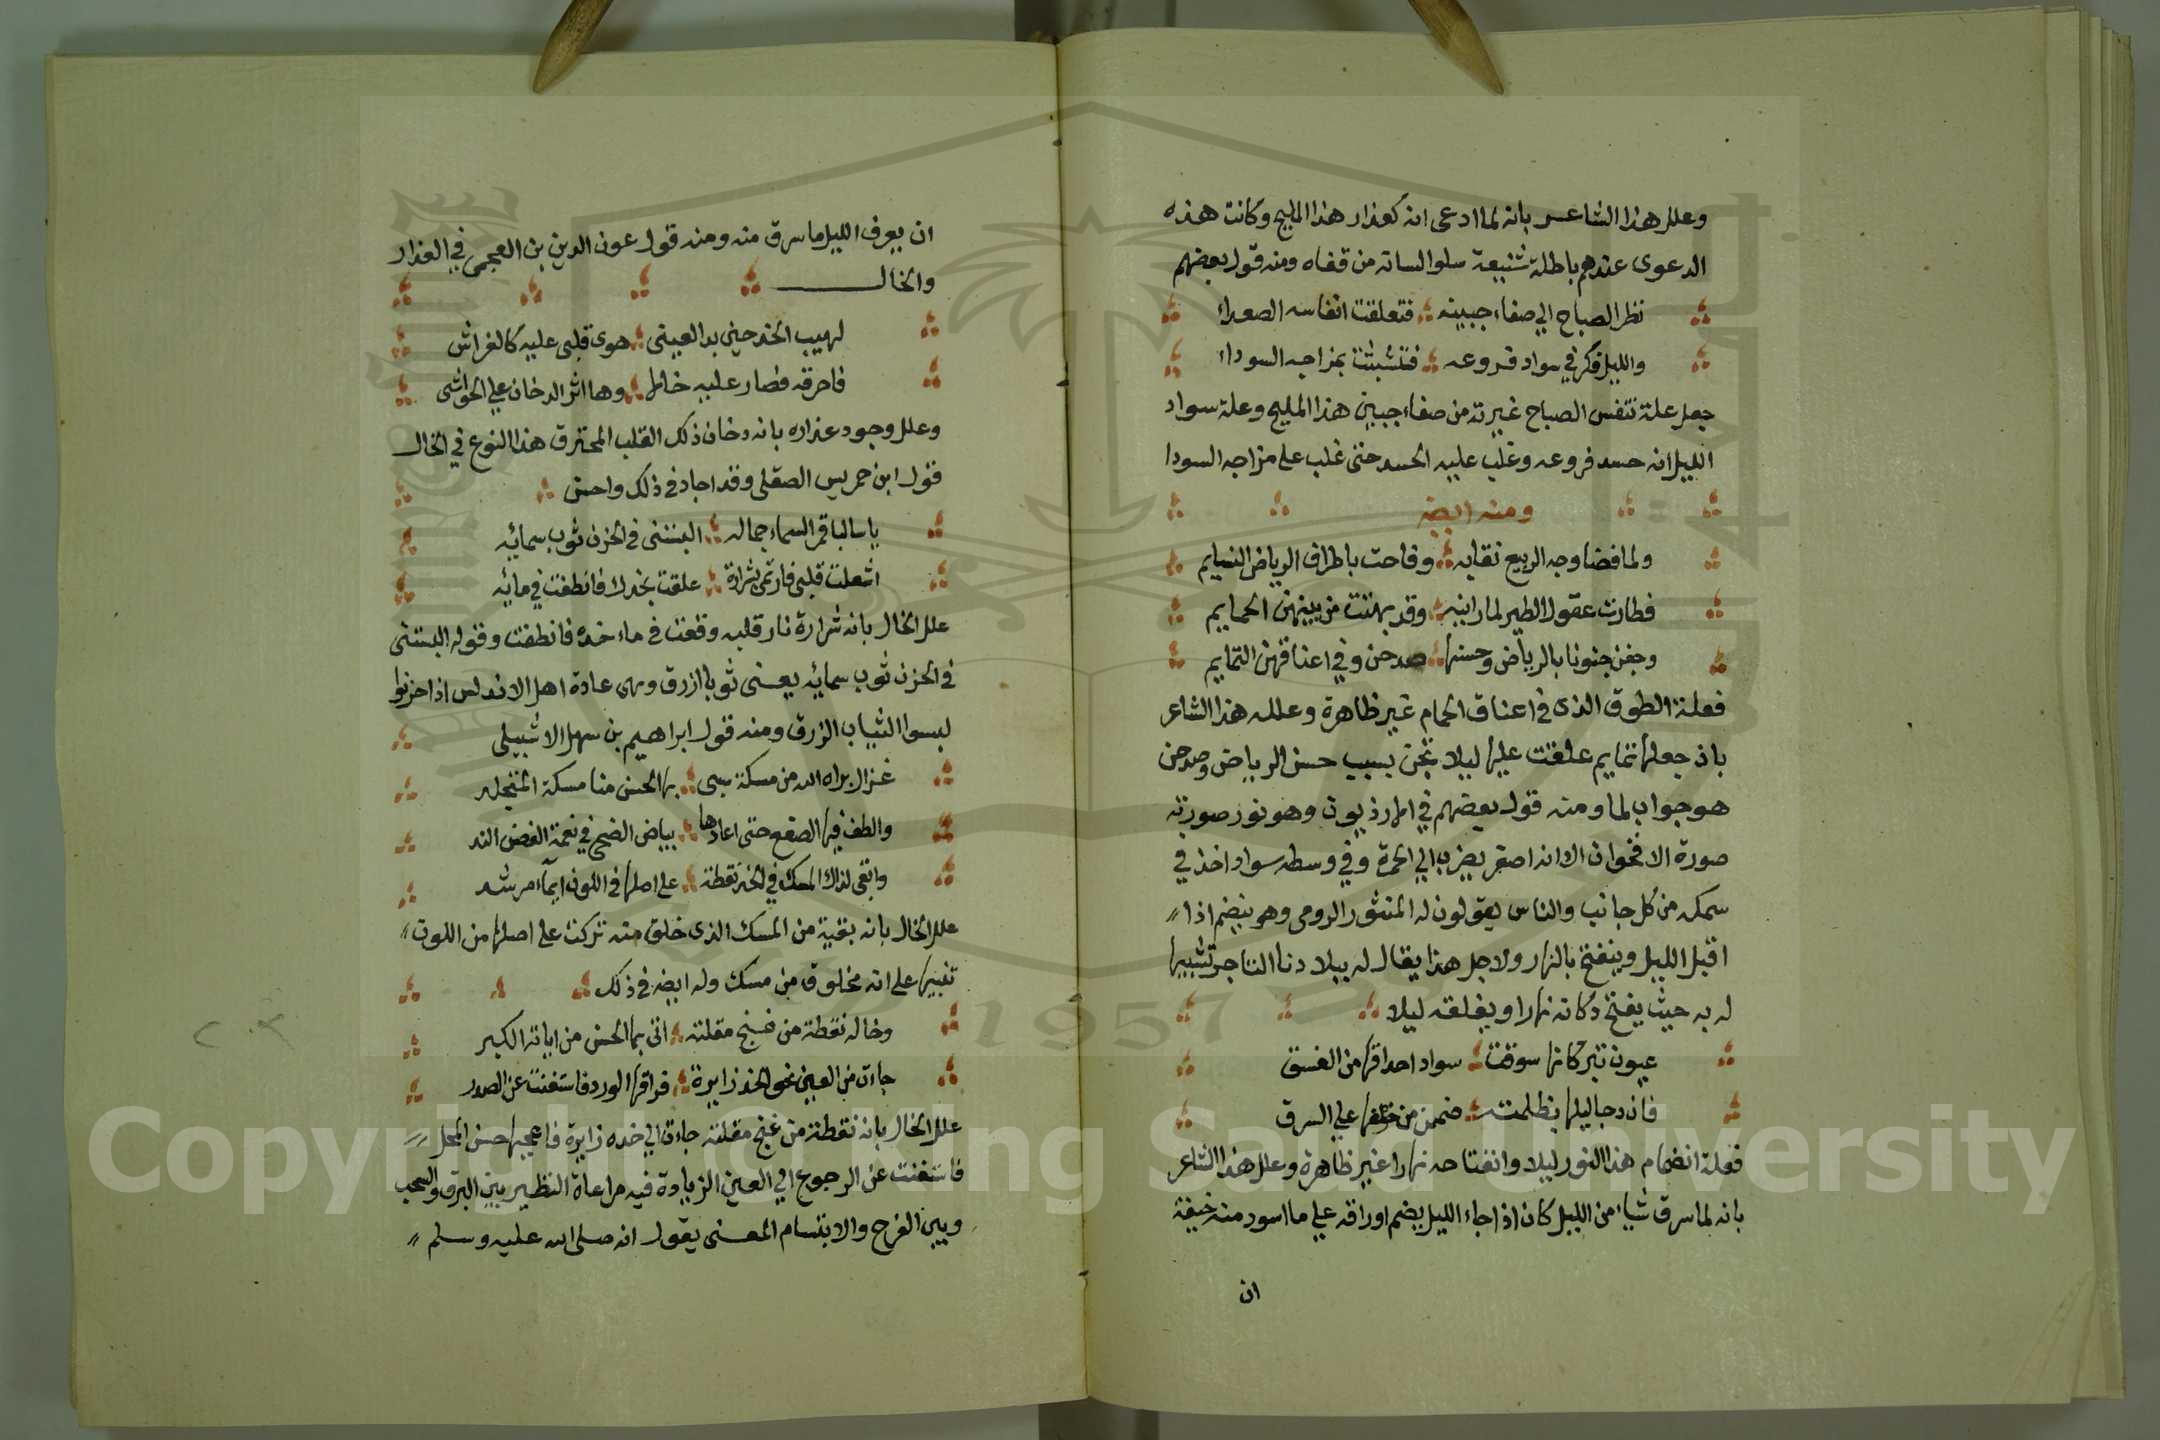 وعلل هذا الشاعر بانه لما ادعى انه كعذار هذا المليح وكانت هذه
الدعوى عندهم باطلة شنيعة سلوا لسانه من قفاه ومنه قول بعضهم
نظر الصباح الي صفاء جبينه فتعلقت انفاسه الصعداء
والليل فكر في سواد فروعه فتشبثت بمزاجه السوداء
جعل علة تنفس الصباح غيرته من صفاء جبين هذا المليح وعلة سواد
الليل انه حسد فروعه وغلب عليه الحسد حتى غلب على مزاجه السودا
ومنه ايضه
ولما فضا وجه الربيع نقابه وفاحت باطراف الرياض النسايم
فطارت عقول الطير لما راينه وقد بهتت من بينهن الحمايم
وجفن جنونا بالرياض وحسنها صدحن وفي اعناقهن التمايم
فعلة الطوق الذى في اعناق الحمام غير ظاهرة وعلله هذا الشاعر
بان جعلها تمايم علقت عليها ليلا تجن بسبب حسن الرياض وصدحن
هو جواب لما ومنه قول بعضهم في اطرذيون وهو نور صورته
صورة الاقحوان الا انه اصفر يضرب الي الحمرة وفي وسطه سواد اخذ في
سمكه من كل جانب والناس يقولون له المنثور الرومى وهو ينضم اذا
اقبل الليل وينفتح بالنهار ولاجل هذا يقال له ببلادنا التاجر تشبيها
له به حيث يفتح دكانه نهارا ويغلقه ليلا
عيون تبر كانها سرقت سواد احداقها من الغسق
فان دجا ليلها بظلمته ضممن من خوفها علي السرق
فعلة انضمام هذا النور ليلا وانفتاحه نهارا غير ظاهرة وعلل هذا الشاعر
بانه لما سرق شياء من الليل كان اذا جاء الليل يضم اوراقه علي ما اسود منه خيفة
ان
ان يعرف الليل ما سرق منه ومنه قول عون الدين بن العجمى في العذار
والخال
لهيب الخد حين بدا لعينى هوى قلبى عليه كالفراش
فاحرقه فصار عليه خالا وها اثر الدخان علي الحواشى
وعلل وجود عذاره بانه دخان ذلك القلب المحترق هذا النوع في الخال
قول ابن حمريس الصقلى وقد اجاد فى ذلك واحسن
يا سالبا قمر السماء جماله البستنى فى الحزن ثوب سمائه
اشعلت قلبى فارتمى بشرارة علقت بخدك فانطفت في مائه
علل الخال بانه شرارة نار قلبه وقعت فى ماء خده فانطفت وقوله البستنى
في الحزن ثوب سمائه يعنى ثوبا ازرق وهى عادة اهل الاندلس اذا حزنوا
لبسوا الثياب الزرق ومنه قول ابراهيم بن سهل الاشبيلى
غزال براه الله من مسكة سبى بها الحسن منا مسكة المتجلد
والطف فيها الصنع حتى اعادها بياض الضحى في نعمة الغصن الند
وابقى لذاك المسك في الخد نقطة على اصلها فى اللون ايماء مرشد
علل الخال بانه بقية من المسك الذى خلق منه تركت على اصلها من اللون
تنبيها على انه مخلوق من مسك وله ايضه فى ذلك
وخاله نقطة من غنج مقلته اتى بها الحسن من اياته الكبر
جاءت من العين نحو الخد زايرة فراقها الورد فاستغنت عن الصدر
علل الخال بانه نقطة من غنج مقلته جاءت الي خده زايرة فاعجبها حسن المحل
فاستغنت عن الرجوع الي العين الزيادة فيه مراعاة النظير بين البرق والسحب
وبين الفرح والابتسام المعنى يقول انه صلى الله عليه وسلم
٢٠٣
Copyright © King Saud University
1957